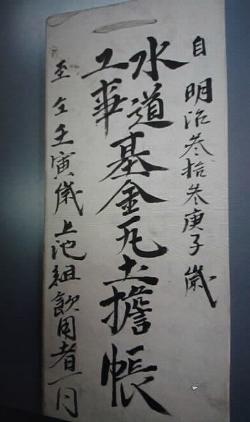 自明治叁拾叁庚子歳
水道
工事
基金元土擔帳
至仝壬寅歳上池組飲用者一同